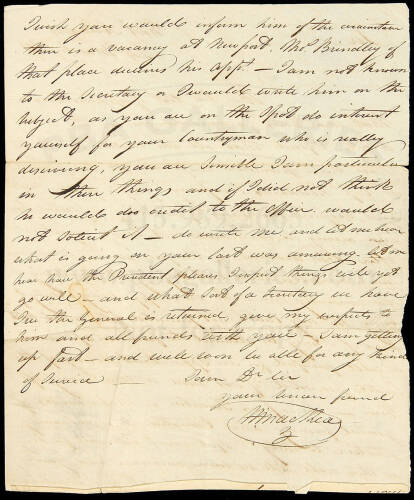 I wish you would inform him of the circumstance
there is a vacancy at Newport. Thos Brindley of
that place declines his appt. — I am not known
to the Secretary or I would write him on the
subject, as you are on the Spot do interest
yourself for your Countryman who is really
deserving, you are sensible I am particular
in these things and if I did not think
he would do credit to the Office would
not solicit it — do write me and let me hear
what is going on your last was amusing. Let me
hear how the President pleases I expect things will yet
go well — and what sort of a Secretary we have
I see the General is returned, give my respects to
him and all friends with you — I am getting
up fast — and will soon be able for any kind
of Service —
I am Dr Sir
your sincere friend